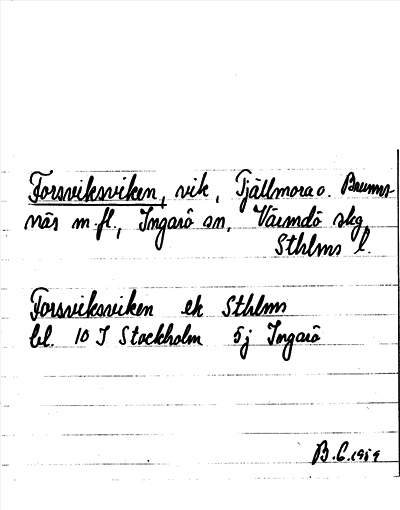 Forsviksviken, vik, Tjällmora o. Brunns-
näs m.fl., Ingarö sn, Värmdö skg
Sthlms l.
Forsviksviken ek Sthlms
bl. 10 I Stockholm 5j Ingarö
B.C. 1959